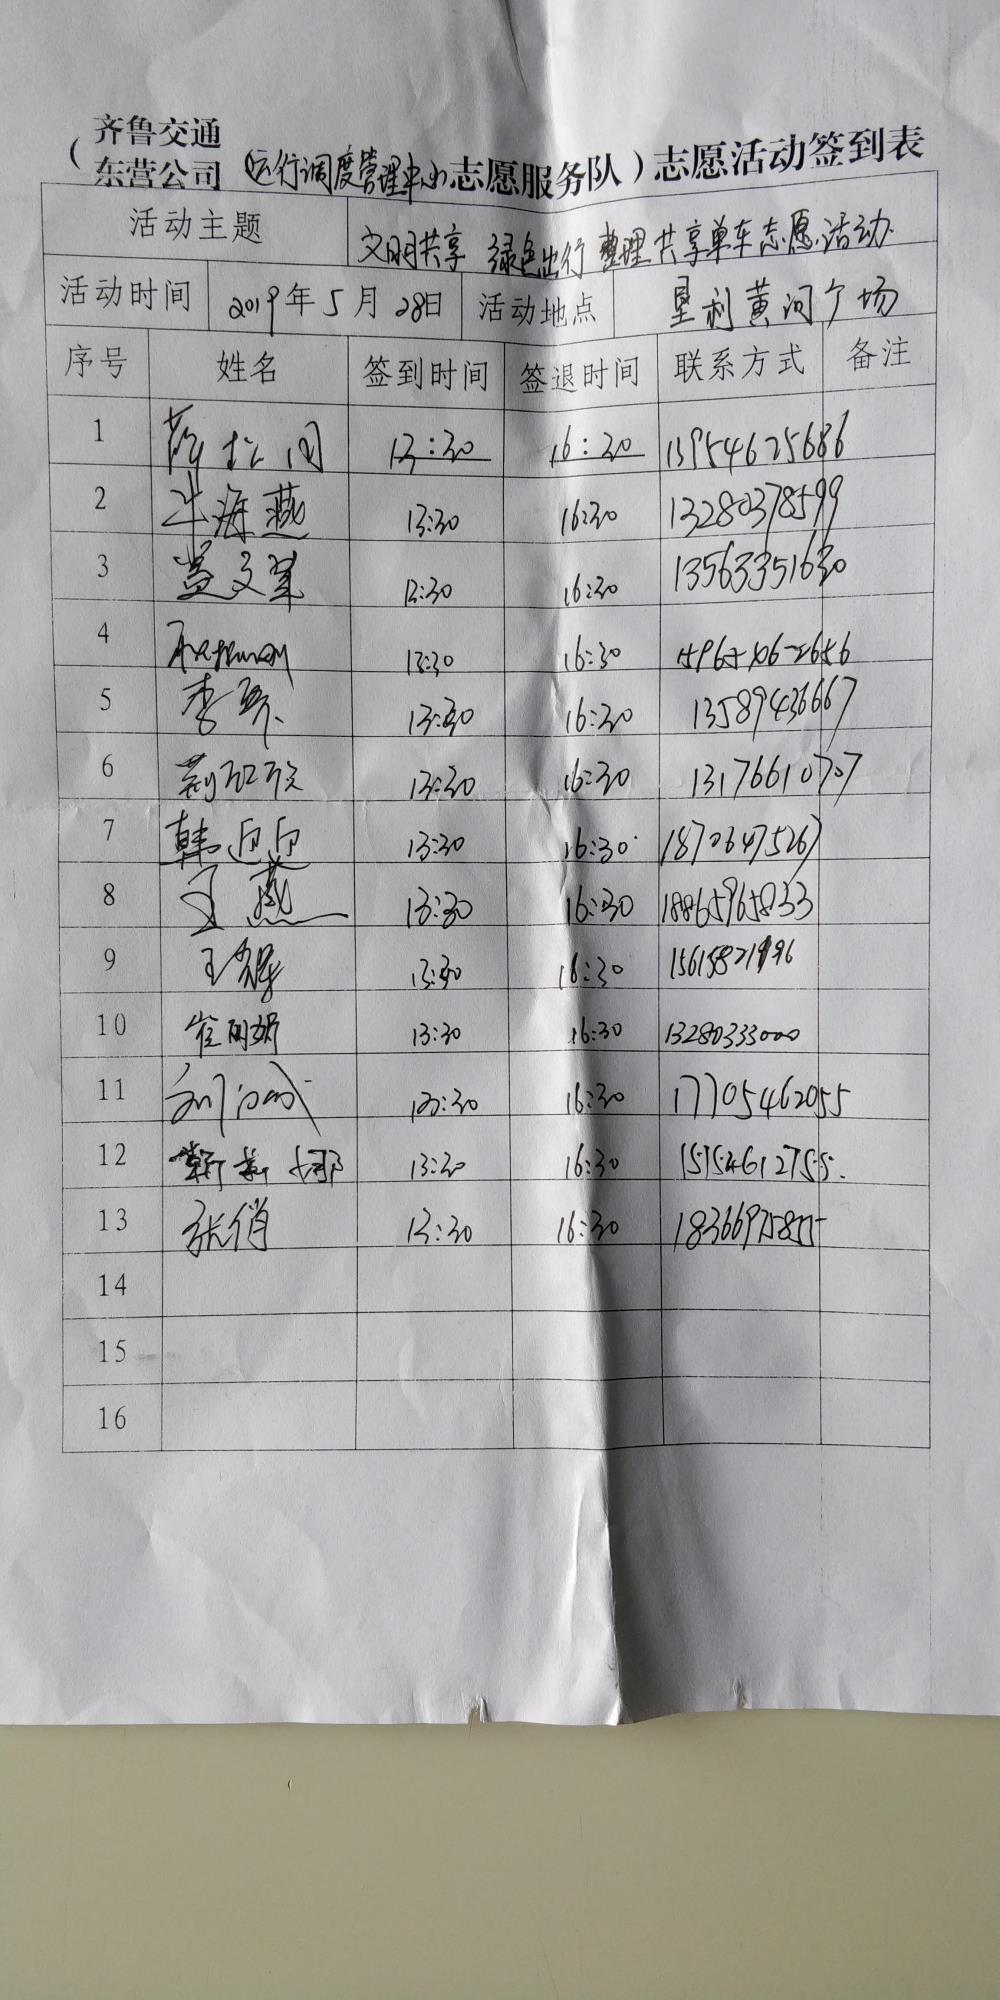 齐鲁交通
(东营公司(运行调度管理中心)志愿服务队)志愿活动签到表
活动主题 文明共享 绿色出行 整理共享单车志愿活动
活动时间 2019年5月28日 活动地点 垦利黄河广场
序号 姓名 签到时间 签退时间 联系方式 备注
1 13:30 16:30 13954625686
2 牛海燕 13:30 16:30 13280378599
3 13:30 16:30 13563351630
4 13:30 16:30
5 李琴 13:30 16:30 13589436667
6 13:30 16:30 13176610707
7 韩迎迎 13:30 16:30 18706475267
8 王燕 13:30 16:30 18865965833
9 13:30 16:30
10 崔明娇 13:30 16:30 13280333000
11 13:30 16:30 17705462055
12 13:30 16:30 15154612755.
13 张俏 13:30 16:30 18366975855
14
15
16